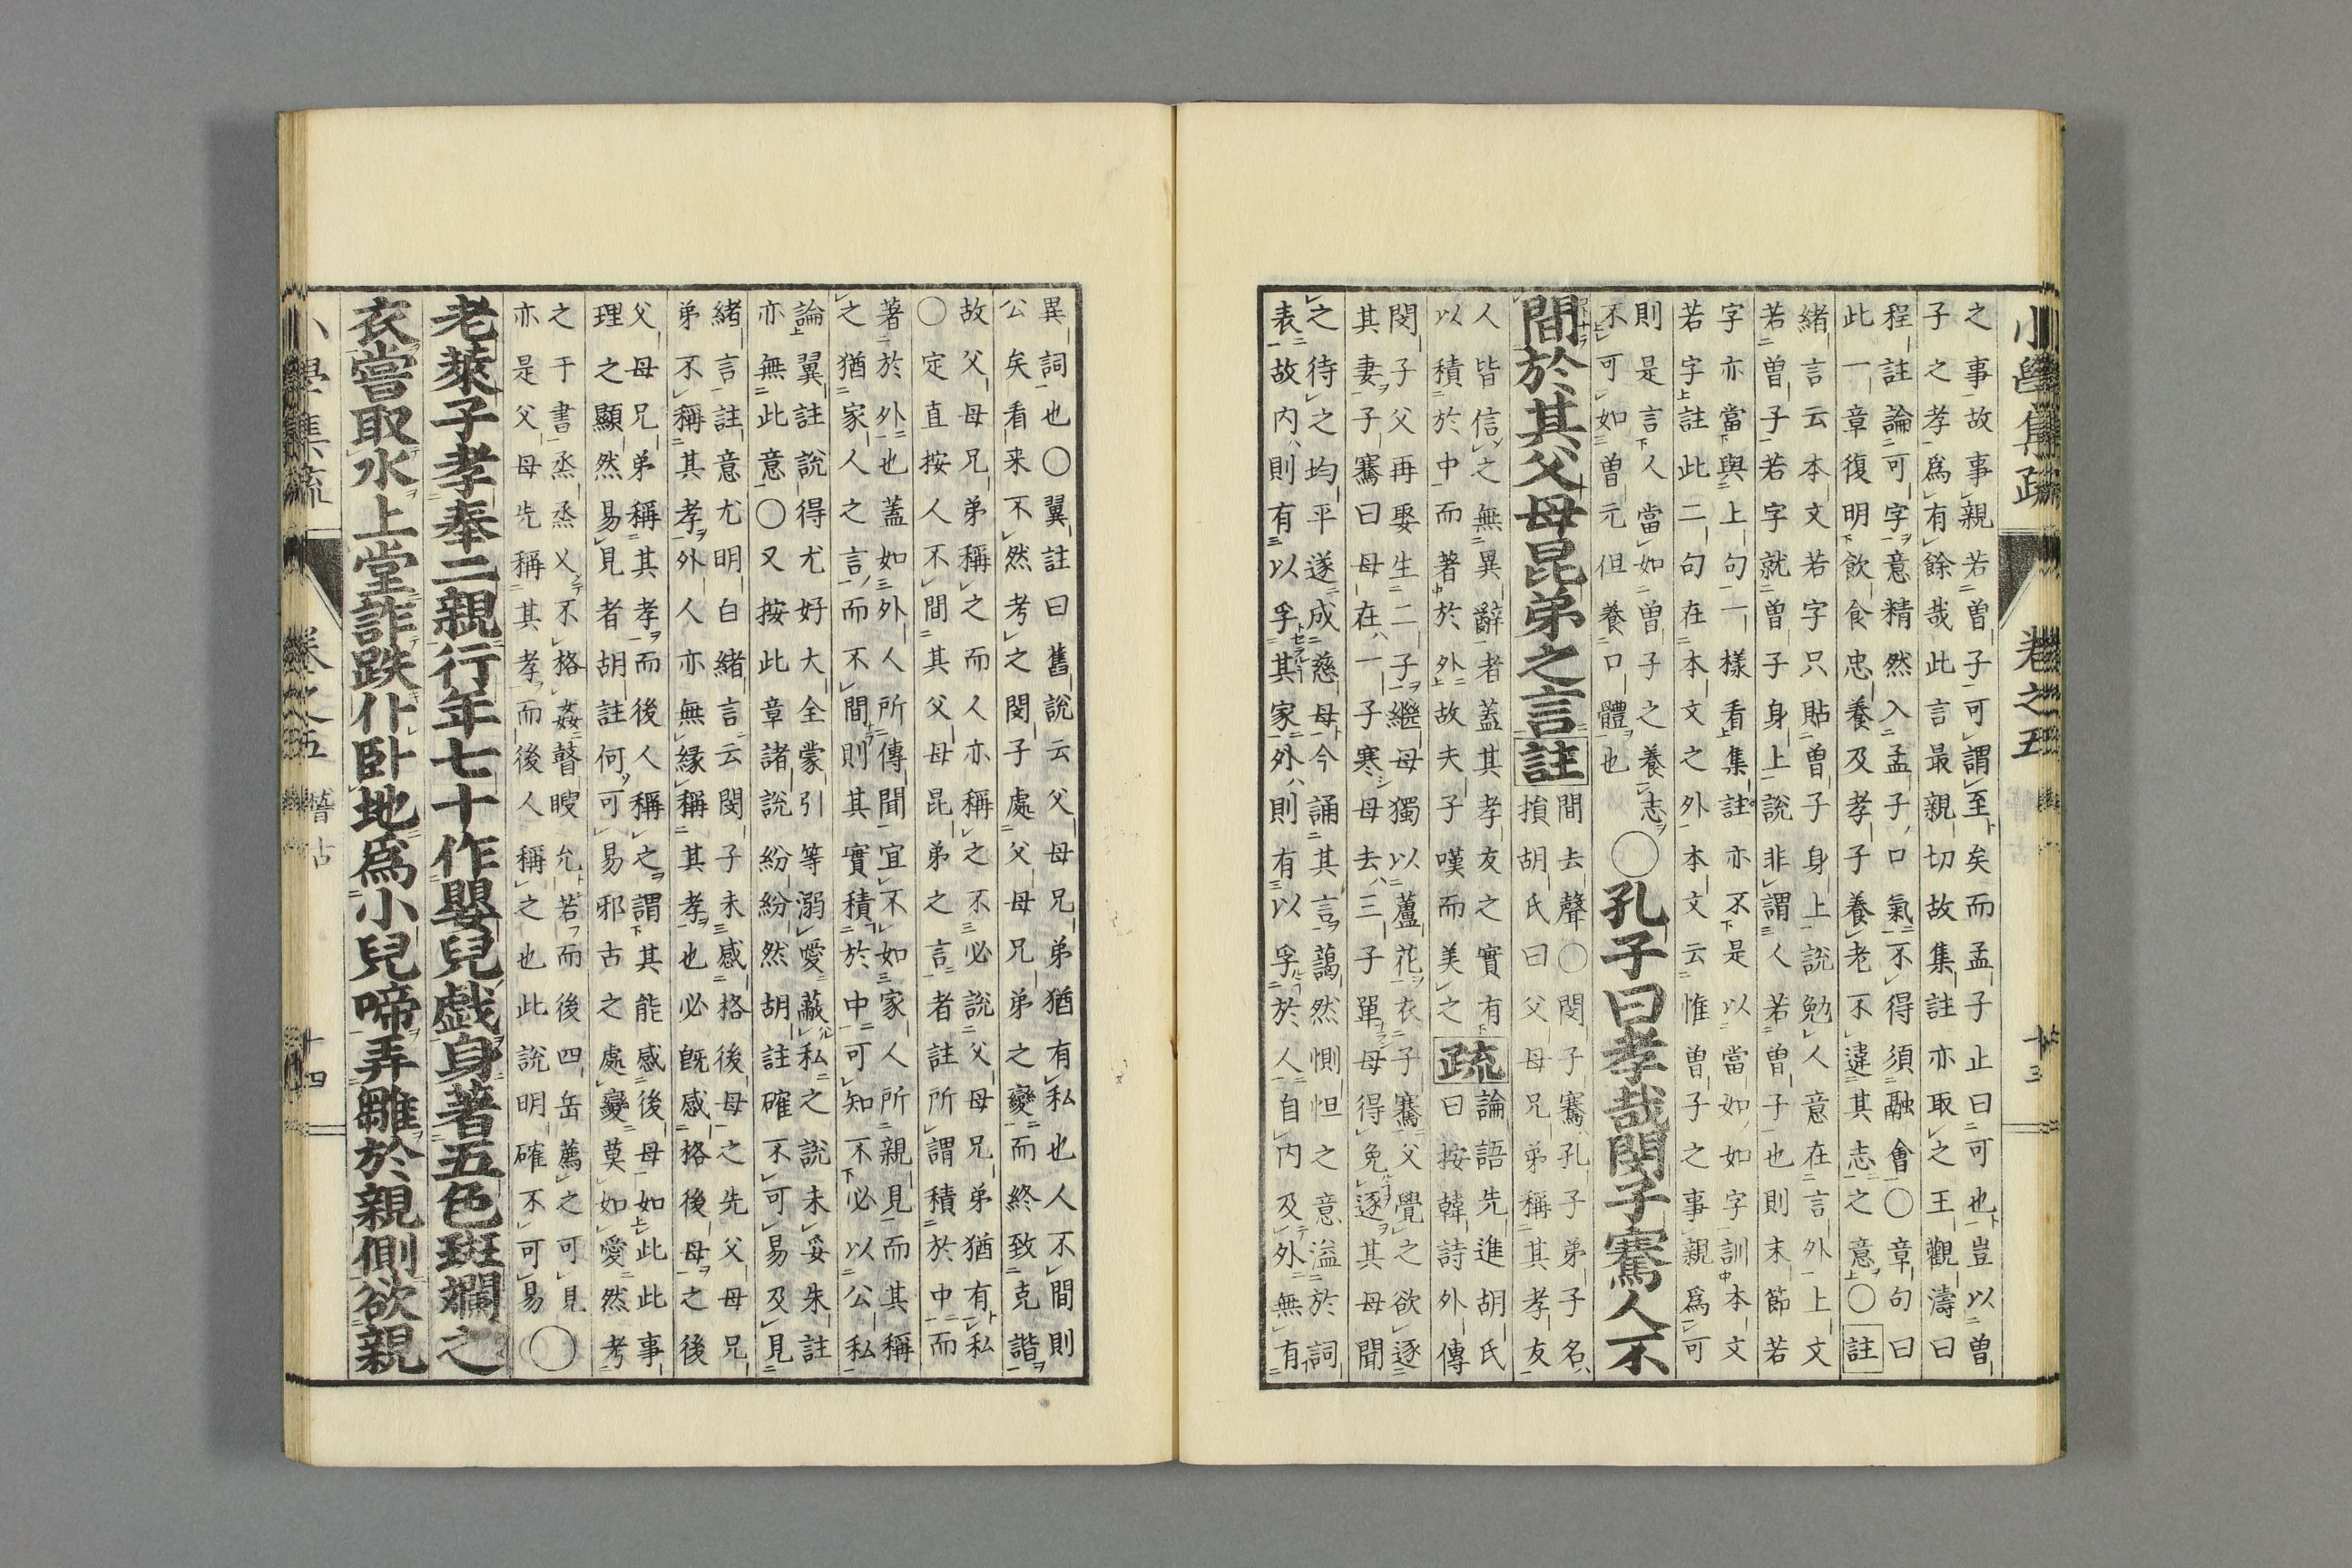 小學集疏　卷之五　十三
之事故事親若曽子可謂至矣而孟子止曰可也豈以曽
子之孝爲有餘哉此言最親切故集註亦取之王觀濤曰
程註論可字意精然入孟子口氣不得須融會○章句曰
此一章復明飲食忠養及孝子養老不違其志之意○註
緒言云本文若字只貼曽子身上說勉人意在言外上文
若曽子若字就曽子身上說非謂人若曽子也則末節若
字亦當與上句一樣看集註亦不是以當如如字訓本文
若字註此二句在本文之外本文云惟曽子之事親爲可
則是言人當如曽子之養志
不可如曽元但養口體也
○孔子曰孝哉閔子騫人不
間於其父母昆弟之言註
間去聲○閔子騫孔子弟子名
損胡氏曰父母兄弟稱其孝友
人皆信之無異辭者蓋其孝友之實有
以積於中而著於外故夫子嘆而美之
疏論語先進胡氏
曰按韓詩外傳
閔子父再娶生二子繼母獨以蘆花衣子騫父覺之欲逐
其妻子騫曰母在一子寒母去三子單母得免逐其母聞
之待之均平遂成慈母今誦其言藹然惻怛之意溢於詞
表故内則有以孚其家外則有以孚於人自内及外無有
異詞也○翼註曰舊說云父母兄弟猶有私也人不間則
公矣看来不然考之閔子處父母兄弟之變而終致克諧
故父母兄弟稱之而人亦稱之不必說父母兄弟猶有私
○定直按人不間其父母昆弟之言者註所謂積於中而
著於外也蓋如外人所傳聞宜不如家人所親見而其稱
之猶家人之言而不間則其實積於中可知不必以公私
論翼註說得尤好大全蒙引等溺愛蔽私之說未妥朱註
亦無此意○又按此章諸說紛紛然胡註確不可易及見
緒言註意尤明白緒言云閔子未感格後母之先父母兄
弟不稱其孝外人亦無緣稱其孝也必旣感格後母之後
父母兄弟稱其孝而後人稱之謂其能感後母如此此事
理之顯然易見者胡註何可易邪古之處變莫如愛然考
之于書烝烝乂不格姦瞽瞍允若而後四岳薦之可見
亦是父母先稱其孝而後人稱之也此說明確不可易○
老萊子孝奉二親行年七十作嬰兒戲身著五色斑斕之
衣嘗取水上堂詐跌仆臥地爲小兒啼弄雛於親側欲親
小學集疏　卷之五　稽古　十四